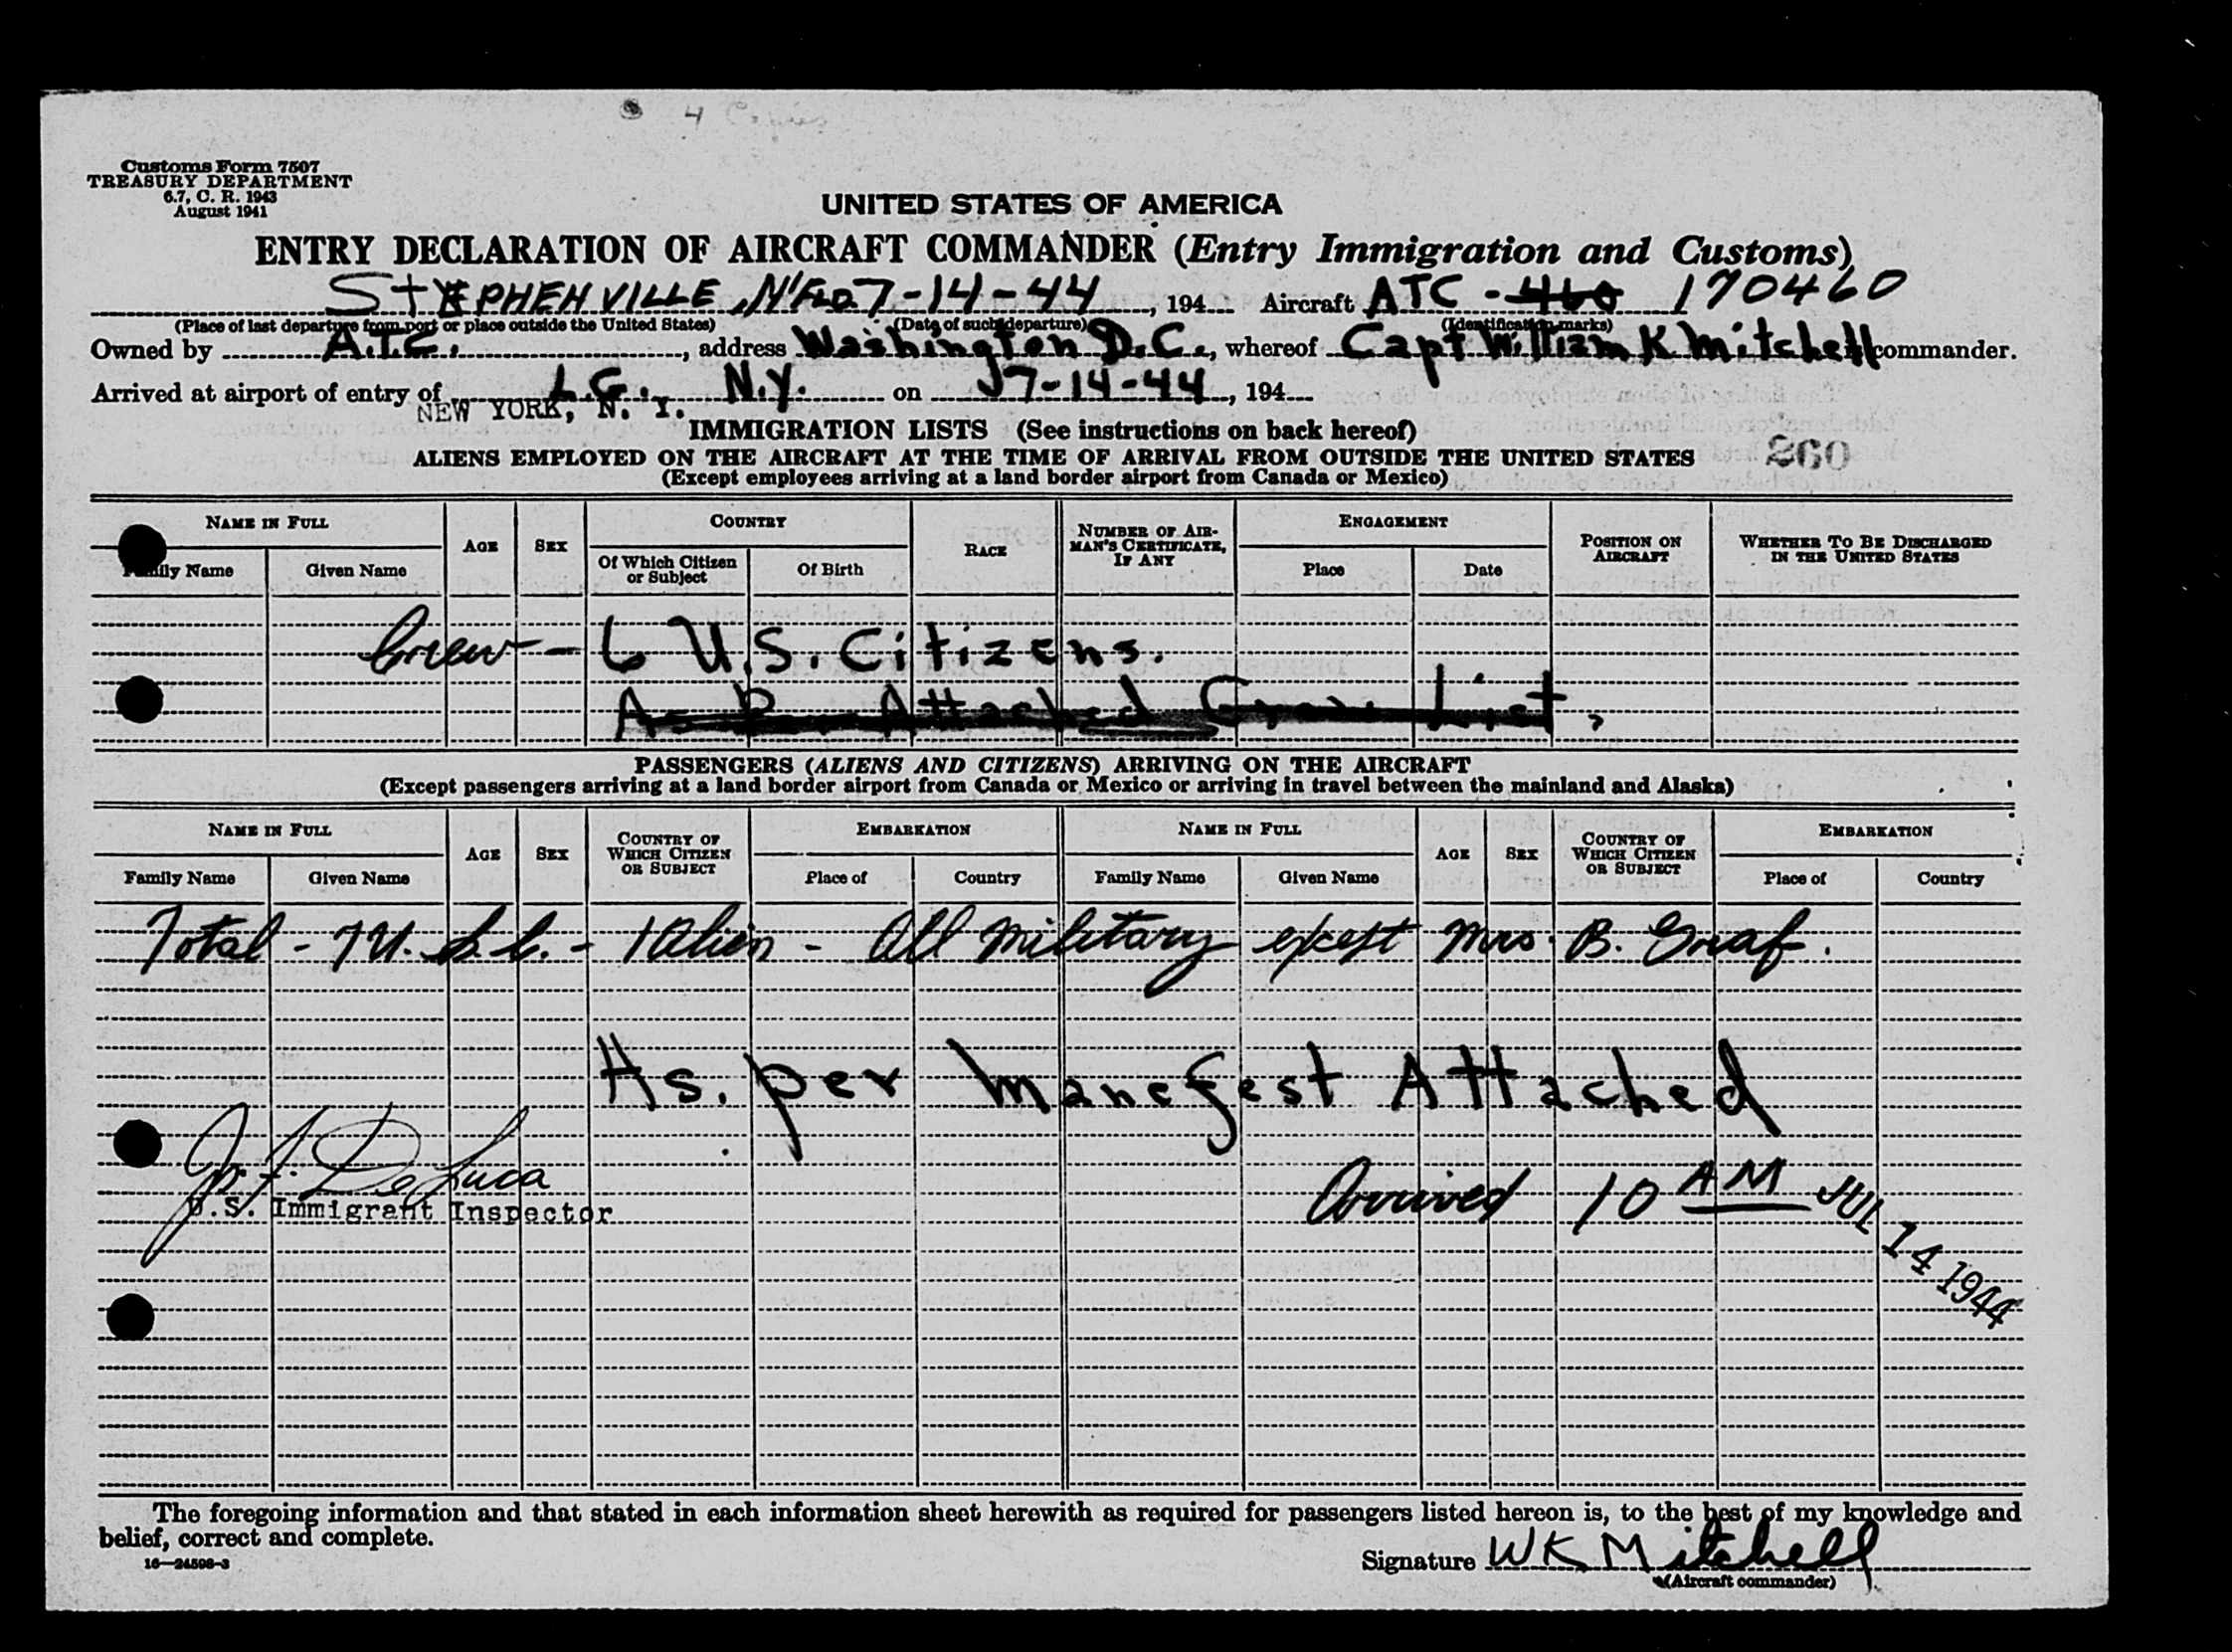 4 Copies
Customs Form 7507
TREASURY DEPARTMENT
6.7, C. R. 1943
August 1941
UNITED STATES OF AMERICA
ENTRY DECLARATION OF AIRCRAFT COMMANDER (Entry Immigration and Customs)
STEPHENVILLE, N'FLD. 7-14-44, 194 Aircraft ATC - 460 170460
(Place of last departure from port or place outside the United States) (Date of such departure) (Identification marks)
Owned by A.T.C., address Washington D.C., whereof Capt William K Mitchell commander.
Arrived at airport of entry of L.G. N.Y. on 7-14-44, 194
NEW YORK, N. Y.
IMMIGRATION LISTS (See instructions on back hereof)
ALIENS EMPLOYED ON THE AIRCRAFT AT THE TIME OF ARRIVAL FROM OUTSIDE THE UNITED STATES 260
(Except employees arriving at a land border airport from Canada or Mexico)
NAME IN FULL AGE SEX COUNTRY RACE NUMBER OF AIRMAN'S CERTIFICATE, IF ANY ENGAGEMENT POSITION ON AIRCRAFT WHETHER TO BE DISCHARGED IN THE UNITED STATES
Family Name Given Name Of Which Citizen or Subject Of Birth Place Date
Crew - 6 U.S. Citizens.
As Per Attached Crew List,
PASSENGERS (ALIENS AND CITIZENS) ARRIVING ON THE AIRCRAFT
(Except passengers arriving at a land border airport from Canada or Mexico or arriving in travel between the mainland and Alaska)
NAME IN FULL AGE SEX COUNTRY OF WHICH CITIZEN OR SUBJECT EMBARKATION NAME IN FULL AGE SEX COUNTRY OF WHICH CITIZEN OR SUBJECT EMBARKATION
Family Name Given Name Place of Country Family Name Given Name Place of Country
Total - 7 U.S.C. - 1 Alien - All Military except Mrs. B. Graf.
As. per Manefest Attached
J. De Luca
U.S. Immigrant Inspector
Arrived 10 AM JUL 14 1944
The foregoing information and that stated in each information sheet herewith as required for passengers listed hereon is, to the best of my knowledge and
belief, correct and complete.
16—24598-3
Signature WK Mitchell
(Aircraft commander)